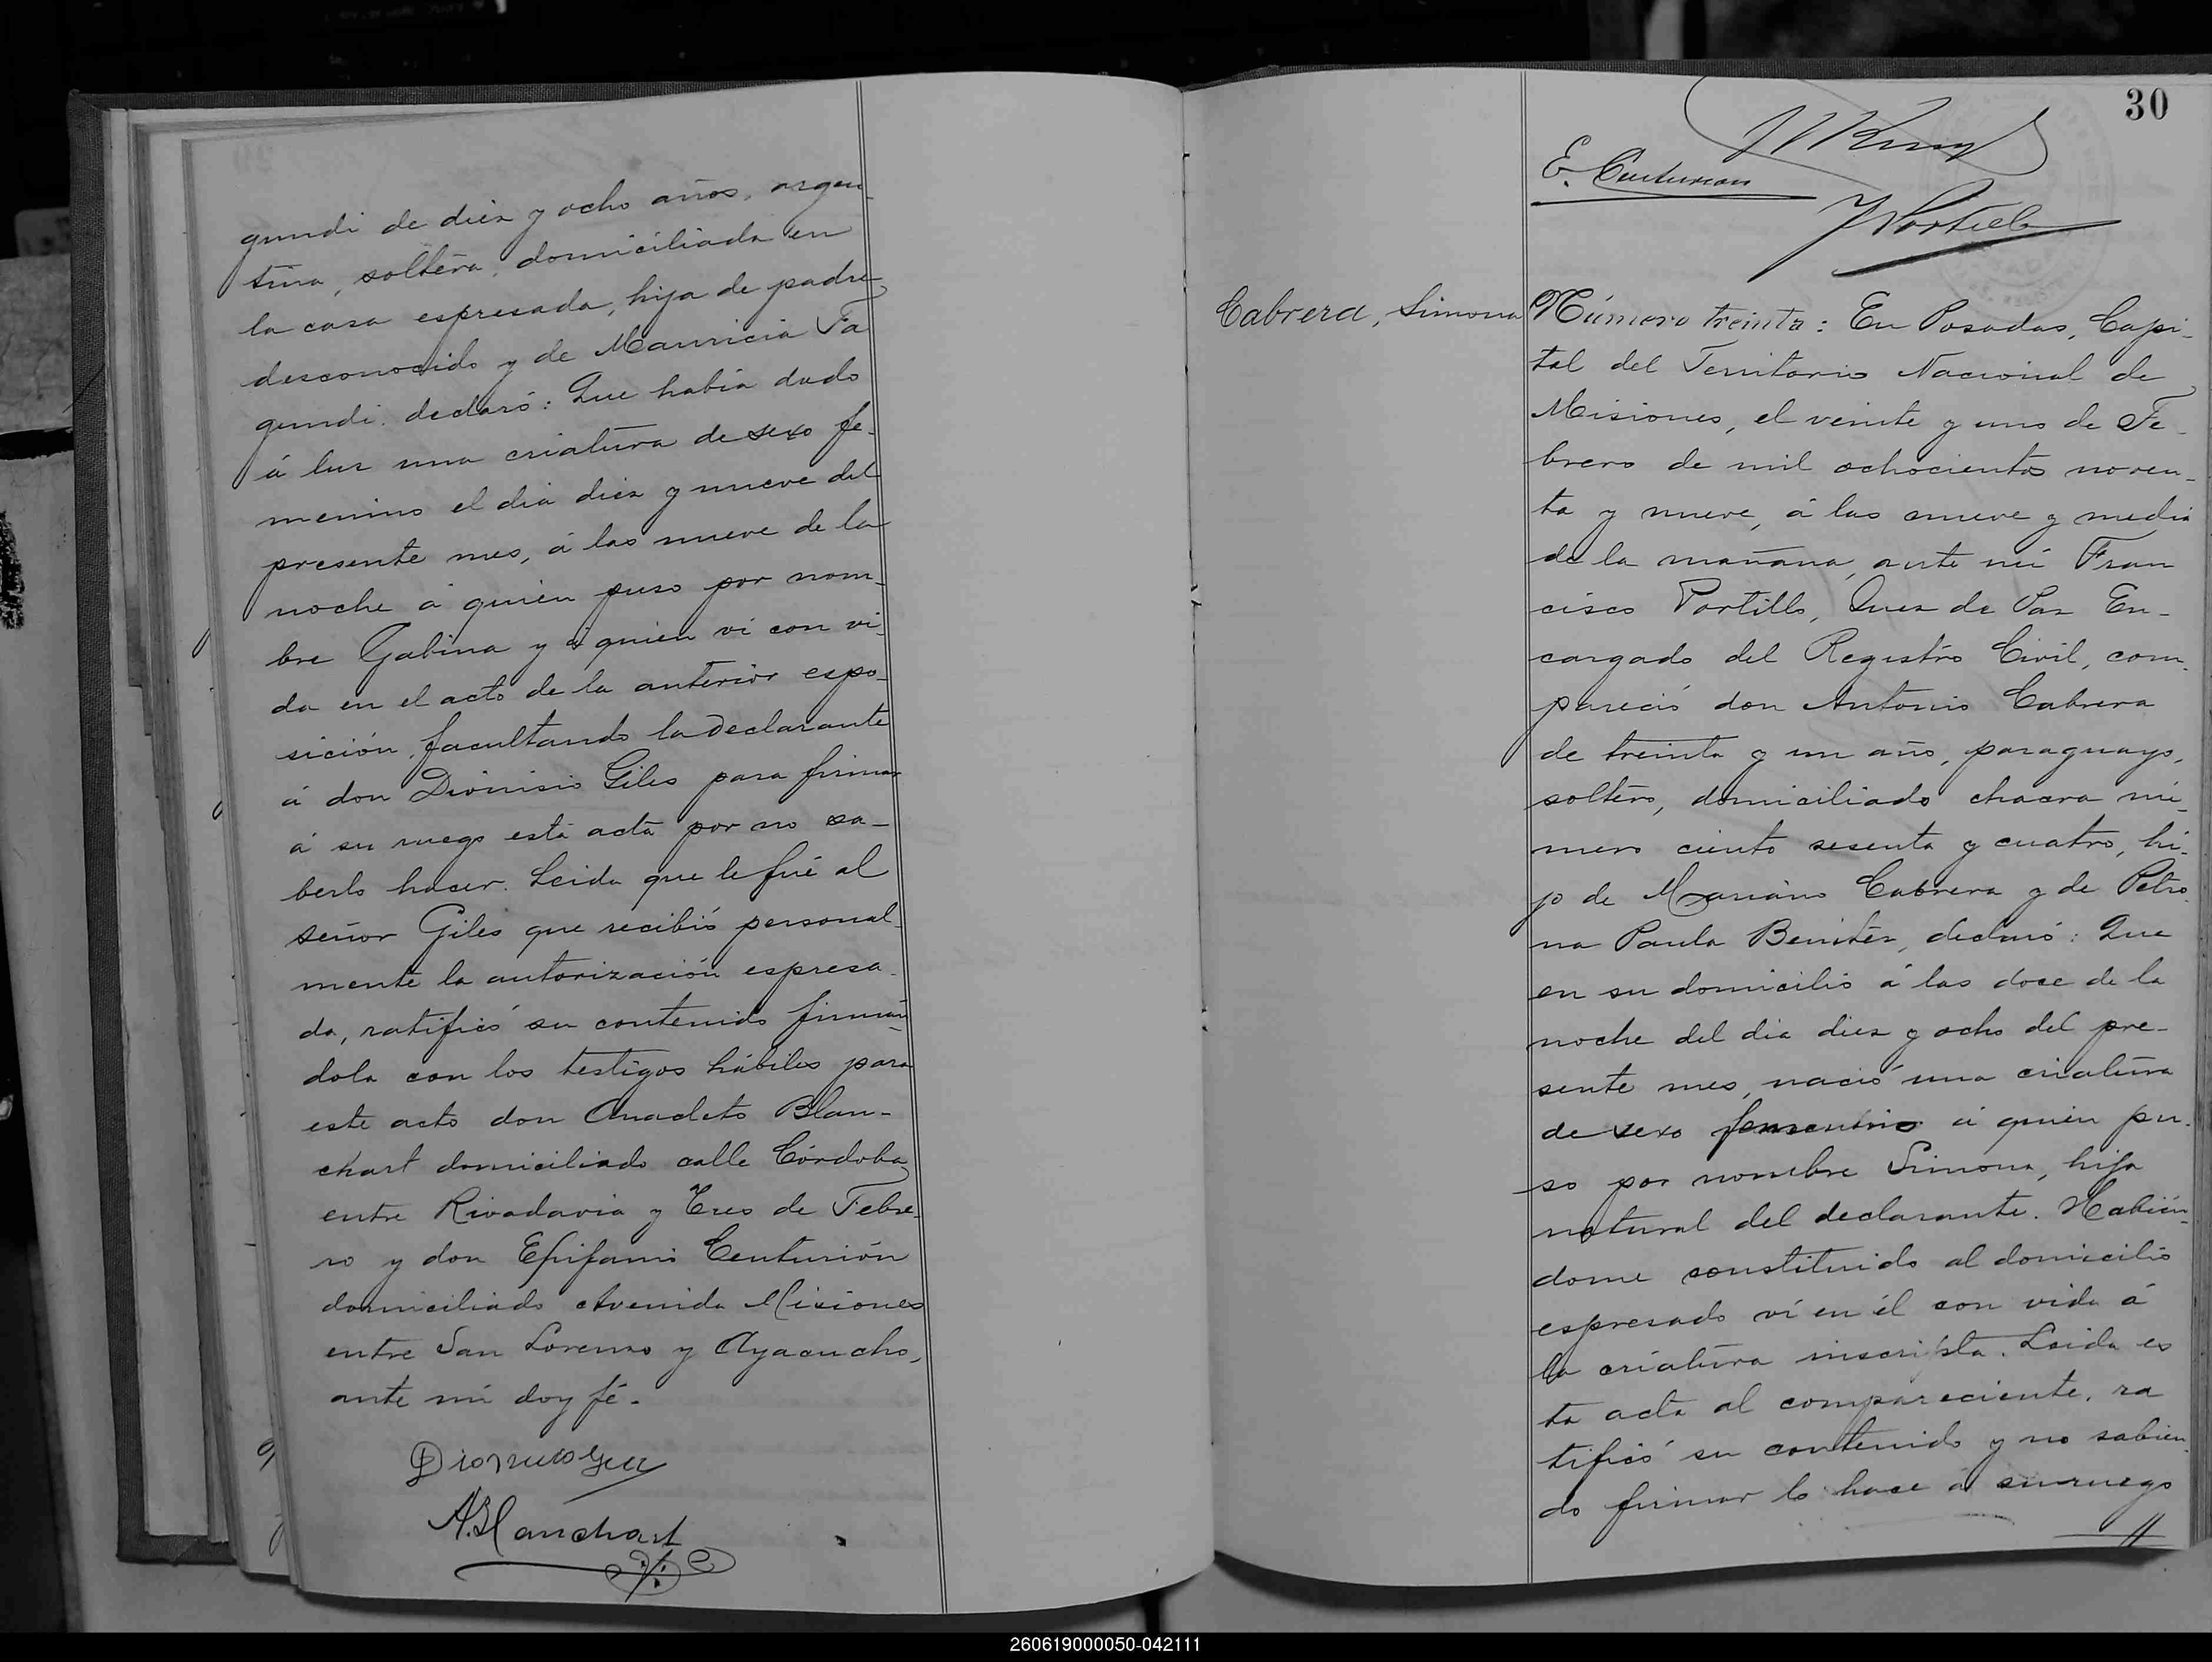 gundi de diez y ocho años, argen
tina, soltera, domiciliada en
la casa espresada, hija de padre
desconocido y de Mauricia Fa
gundi. declaró: Que había dado
á luz una criatura de sexo fe-
menino el dia diez y nueve del
presente mes, á las nueve de la
noche á quien puso por nom-
bre Gabina y á quien vi con vi-
da en el acto de la anterior espo-
sición, facultando la declarante
á don Dionisio Giles para firmar
á su ruego esta acta por no sa-
berlo hacer. Leida que le fué al
señor Giles que recibió personal-
mente la autorización espresa-
da, ratificó su contenido firmán-
dola con los testigos hábiles para
este acto don Anacleto Blan-
chart domiciliado calle Córdoba
entre Rivadavia y Tres de Febre-
ro y don Epifanio Centurión
domiciliado Avenida Misiones
entre San Lorenzo y Ayacucho,
ante mí doy fé.
A. Blanchart
30
E. Centurion
Cabrera, Simona
Número treinta: En Posadas, Capi-
tal del Territorio Nacional de
Misiones, el veinte y uno de Fe-
brero de mil ochocientos noven-
ta y nueve, á las nueve y media
de la mañana, ante mí Fran
cisco Portillo, Juez de Paz En-
cargado del Registro Civil, com-
pareció don Antonio Cabrera
de treinta y un año, paraguayo,
soltero, domiciliado chacra nú-
mero ciento sesenta y cuatro, hi-
jo de Mariano Cabrera y de Petro-
na Paula Benitez, declaró: Que
en su domicilio á las doce de la
noche del dia diez y ocho del pre-
sente mes, nació una criatura
de sexo femenino á quien pu-
so por nombre Simona, hija
natural del declarante. Habién-
dome constituido al domicilio
espresado ví en él con vida á
la criatura inscripta. Leida es
ta acta al compareciente, ra
tificó su contenido y no sabien-
do firmar lo hace á su ruego
260619000050-042111